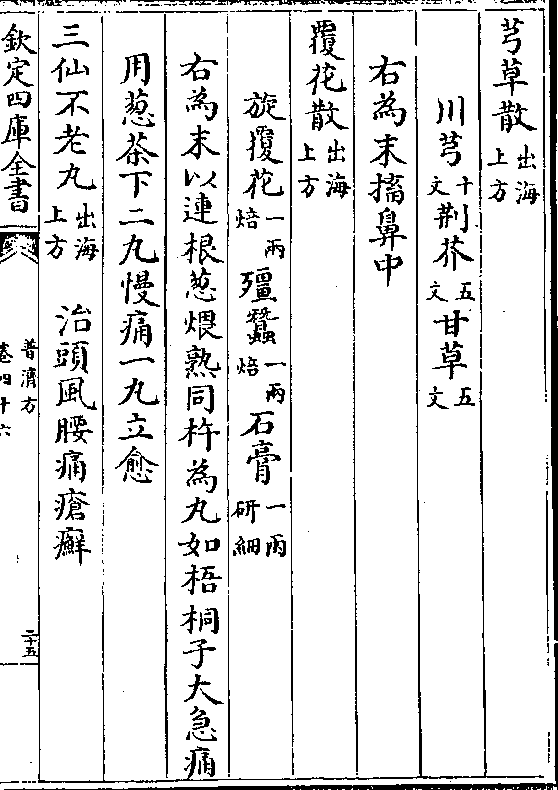 芎草散出海上方
川芎十文荆芥五文甘草五文
右為末搐鼻中
覆花散出海上方
旋覆花一兩焙殭蠶一兩焙石膏一兩研細
右為末以連根葱煨熟同杵為丸如梧桐子大急痛
用葱茶下二丸慢痛一丸立愈
三仙不老丸出海上方 治頭風腰痛瘡癬
欽定四庫全書
普濟方
卷四十六
二十五